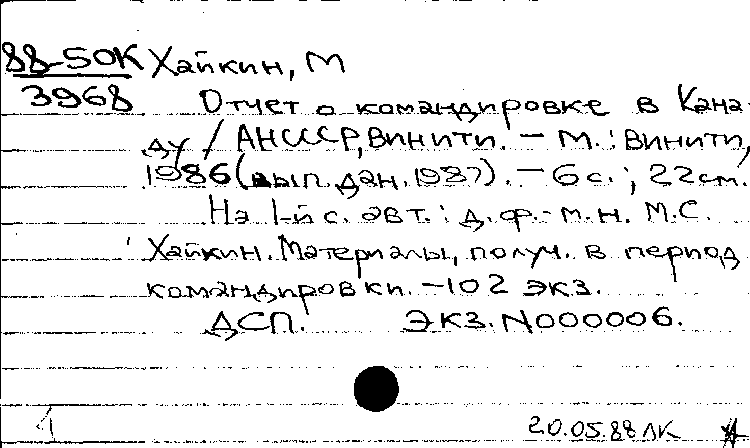 88-5ОК Хайкин, М
3968 Отчет о командировке в Кана-
ду / АН СССР, ВИНИТИ. — М. : ВИНИТИ,
1986 (вып. дан. 1987). — 6 с. ; 22 см.
На 1-й с. авт. : д. ф.-м. н. М.С.
Хайкин. Материалы, получ. в период
командировки. — 102 экз.
ДСП. Экз. N000006.
1 20.05.88 ЛК